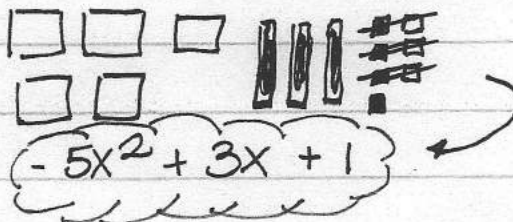 - 5x² + 3x + 1